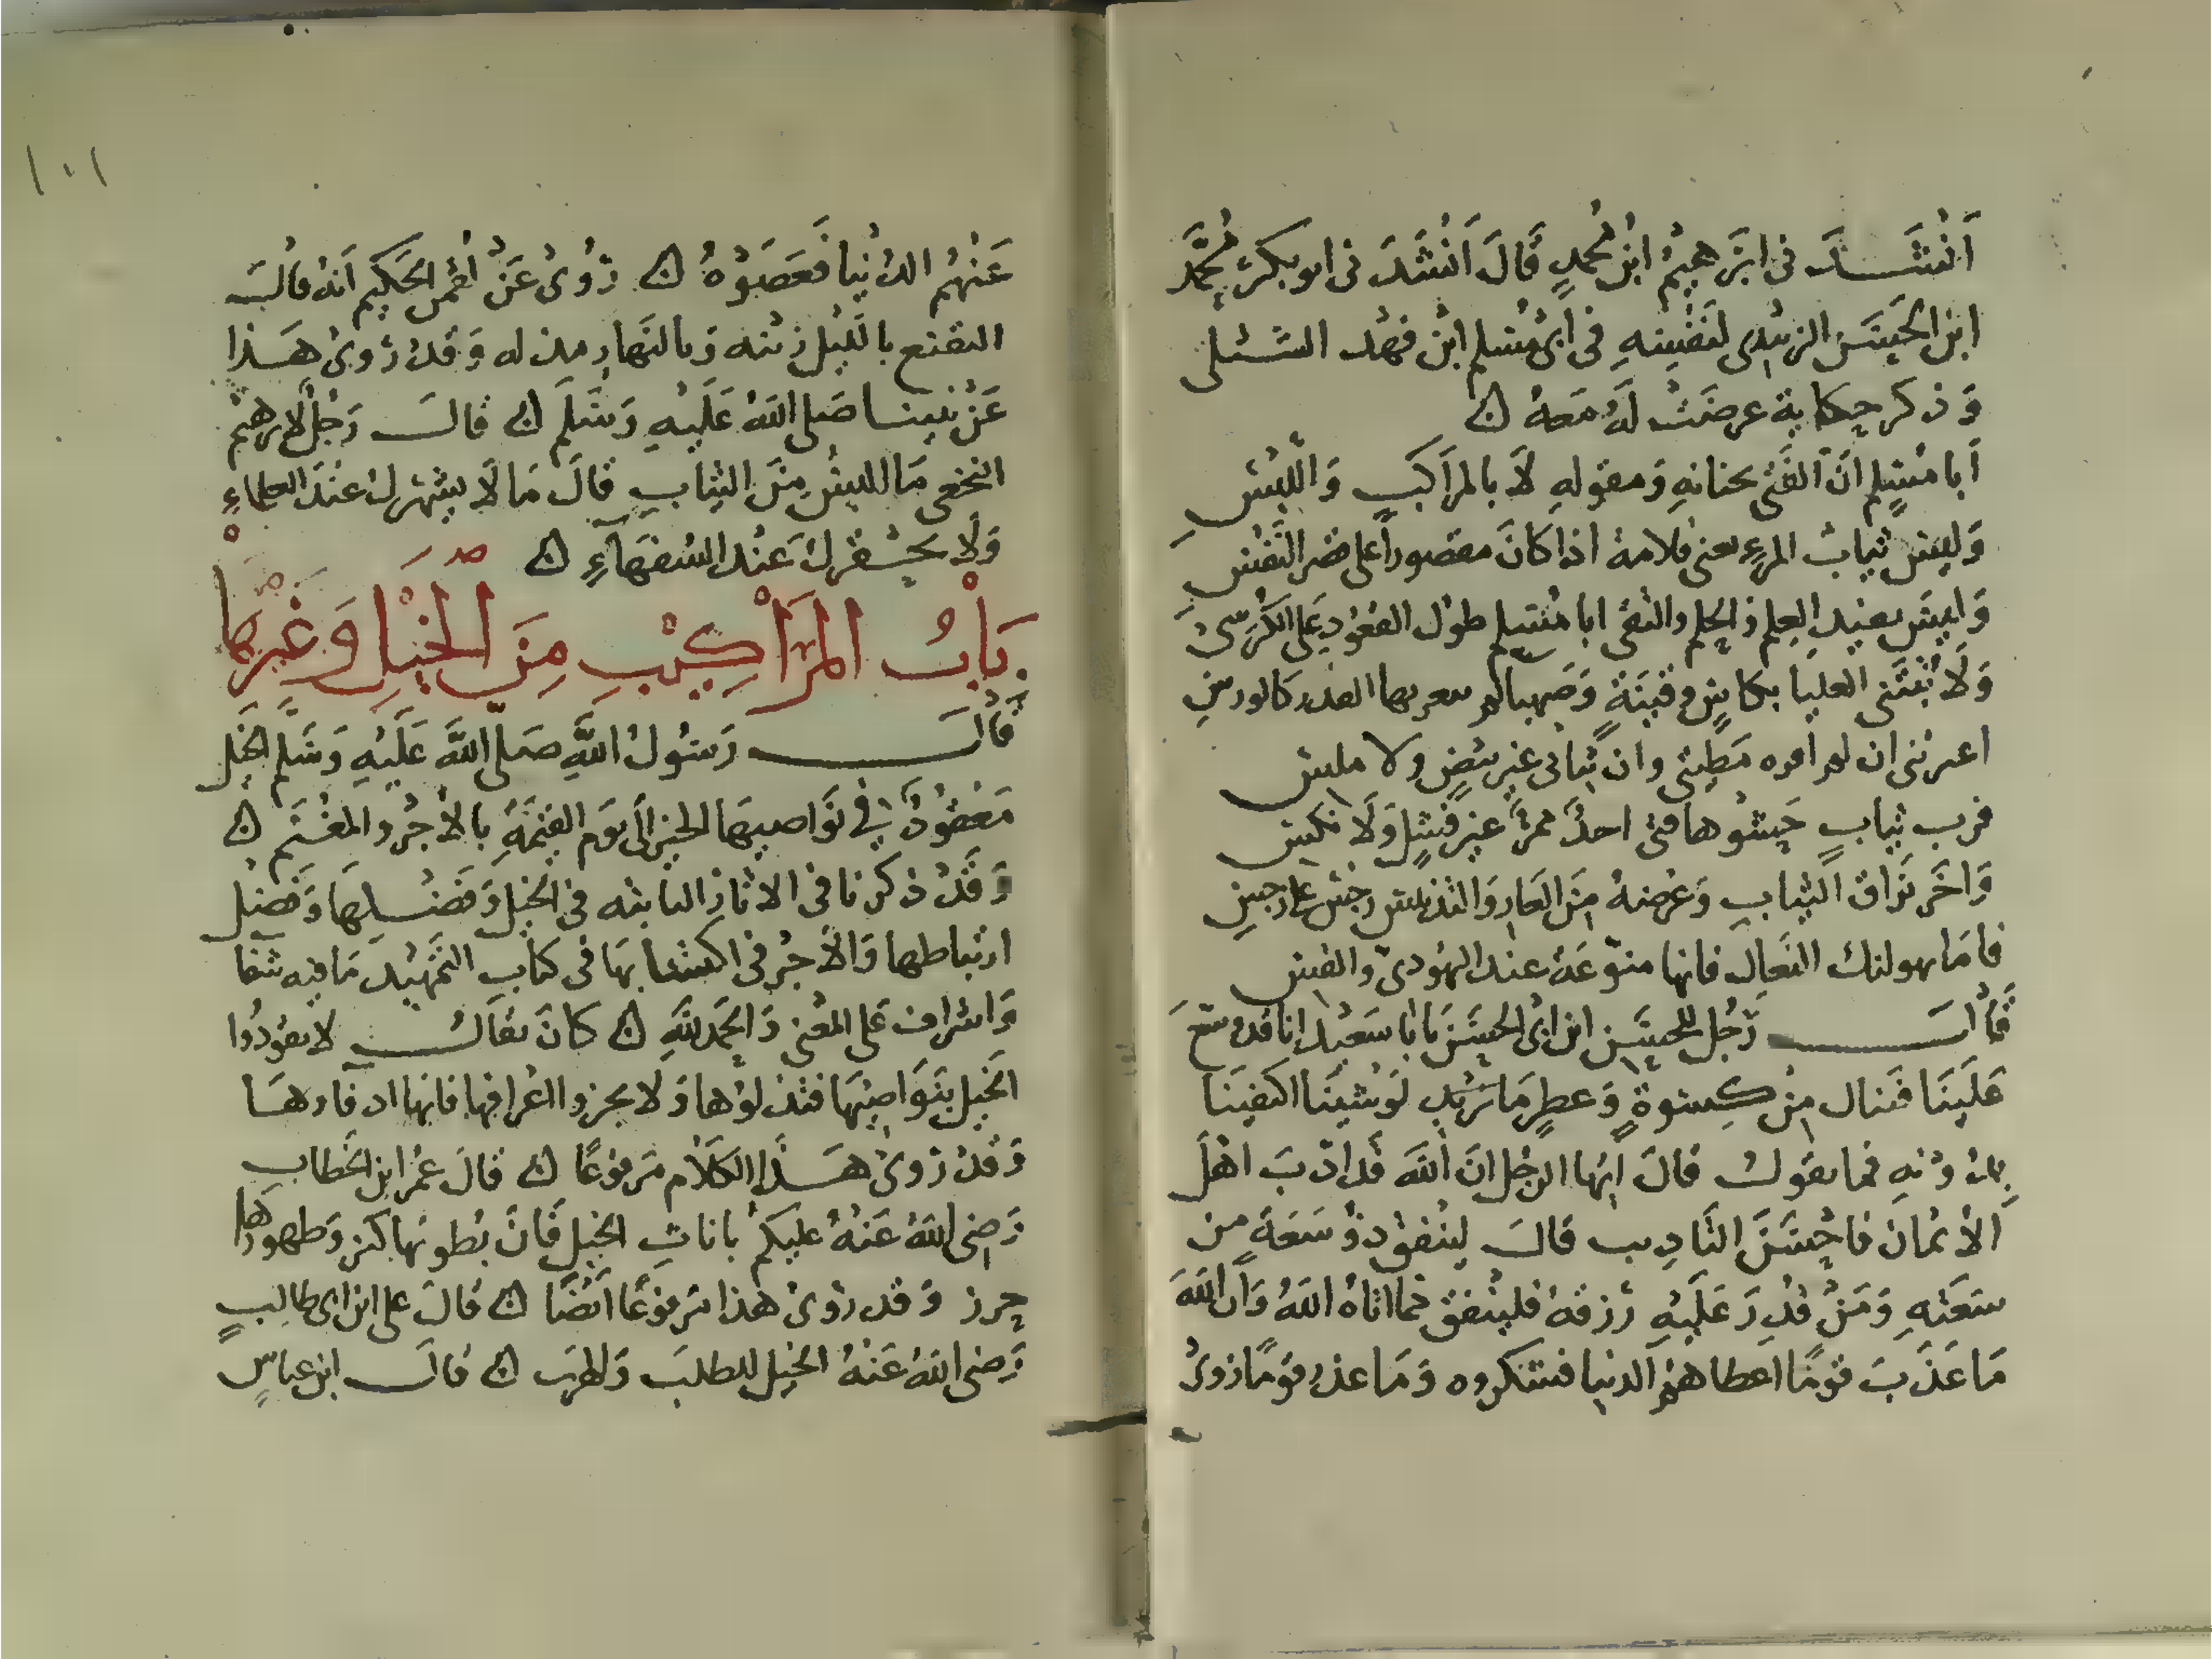 أَنْشَدَنى ابْرَهِيمُ ابْنُ مُحمدٍ قَالَ اَنْشَدَنى ابو بكرٍ مُحمَّد
ابن الحَسَن الزبيدى لنَفْسِهِ فى أبى مُسْلم ابْن فهْد
وَذكر حكاية عرضَتْ لَهُ مَعهُ ن
أَبا مُسْلمٍ انَّ الفَتى بجنانهِ وَمقوله لاَ بالمرَاكبِ وَاللُّبْسِ
وَليسَ ثيابُ المرءِ تغنى قلامة اذا كانَ مقصوراً على قصر النَّفْسِ
وَليسَ يفيد العِلم وَالحِلم والتقى ابا مُسْلم طول القعُود عَلى الكُرسىّ
وَلَا
اعيرتنى ان لم افره مَطيتى وان ثيابى غير بيضٍ ولا ملس
فرب ثيابٍ حَشوها فتى
وَاخَر برَّاق الثيابِ وَعرْضهُ مِنَ العَارِ وَالتدنيس رجس على رجس
فامَا النعال فانها عند اليهُودىّ والقس
قَالَ رَجُل للحسَن ابن ابى الحسَن يَا با سَعيد انا قد وسّعَ
عَلَينَا فننال مِنْ كِسْوةٍ وَعطرٍ مَا نريد لَوْ شِينَا اكتفيَنا
بِدُ وْنهِ فما تقولُ قالَ ايّها الرجُل انَّ اللهَ قَد ادّبَ اهْلَ
الاْيمانَ فاحْسَنَ التَادِيب قالَ ليُنْفِقْ ذوْ سَعَةٍ من
سَعَتهِ وَمَنْ قُدِرَ عَلَيهِ رزقهُ فليُنْفق مما اتاهُ اللهُ وَانَّ اللهَ
مَا عَذّبَ قَومًا اعطاهمُ الدنيا فشكروه وَمَا عذب قومًا زوىْ
١٠١
عَنْهُم الدُنْيا فعَصَوْهُ ن رُوىْ عَنْ لقمن الحَكيم اَنهُ قالَ
التقنع بالليْل رْيبه وَبالنهارِ مذله وَقدْ رُوىْ هَذا
عَنْ نبينا صَلى اللهُ عَلَيْهِ وَسَلمَ ن قالَ رَجُلٌ لابرهيمْ
النخعى مَا البسُ مِنَ الثيابِ قالَ مَا لَا يشهرك عنْدَ العلماءِ
وَلَا يحقرك عَنْد السُفهَآءِ ن
بَابُ المرَاكِبِ مِنَ الْخيْلِ وَغَيْرِهَا
قَالَ رَسُولُ اللهِ صَلى اللهُ عَلَيْهِ وَسَلم الخَيل
مَعْقوُدٌ فى نَوَاصيهَا الخيْر الَى يَوم القيمَةِ بالاْجْر والمغنَم ن
وَقَدْ ذكرنا فى الاثار الثابته فى الخَيل وَفَضْلهَا وَفَضل
ارتباطها وَالاْجْر فى اكتسابهَا فى كتاب التمهيد مَا فيه شفا
وَاشراف عَلى المعْنى وَالحمد للهِ ن كانَ يقالُ لا تقودُوا
الخَيل بنَوَاصيْهَا فتذلوْها وَلا تجزوا اعْرافها فانها ادفاوهَا
وَقدْ رُوىْ هَذا الكلاَم مَرفوعًا ن قالَ عُمر ابن الخطاب
رَضِى اللهُ عَنْهُ عليكمْ باناثِ الخيْل فَانَّ بُطونهَا كنز وَظهورها
حِرز وَقد روىْ هذا مَرفوعًا اَيْضًا ن قالَ على ابن ابى طالِبٍ
رَضى اللهُ عَنْهُ الخيل للطلبَ وَالهرَب ن قالَ ابن عباسٍ